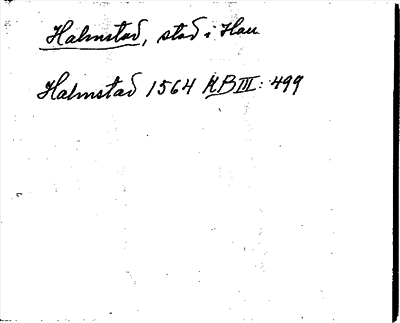 Halmstad, stad i Hall
Halmstad 1564 KB III: 499